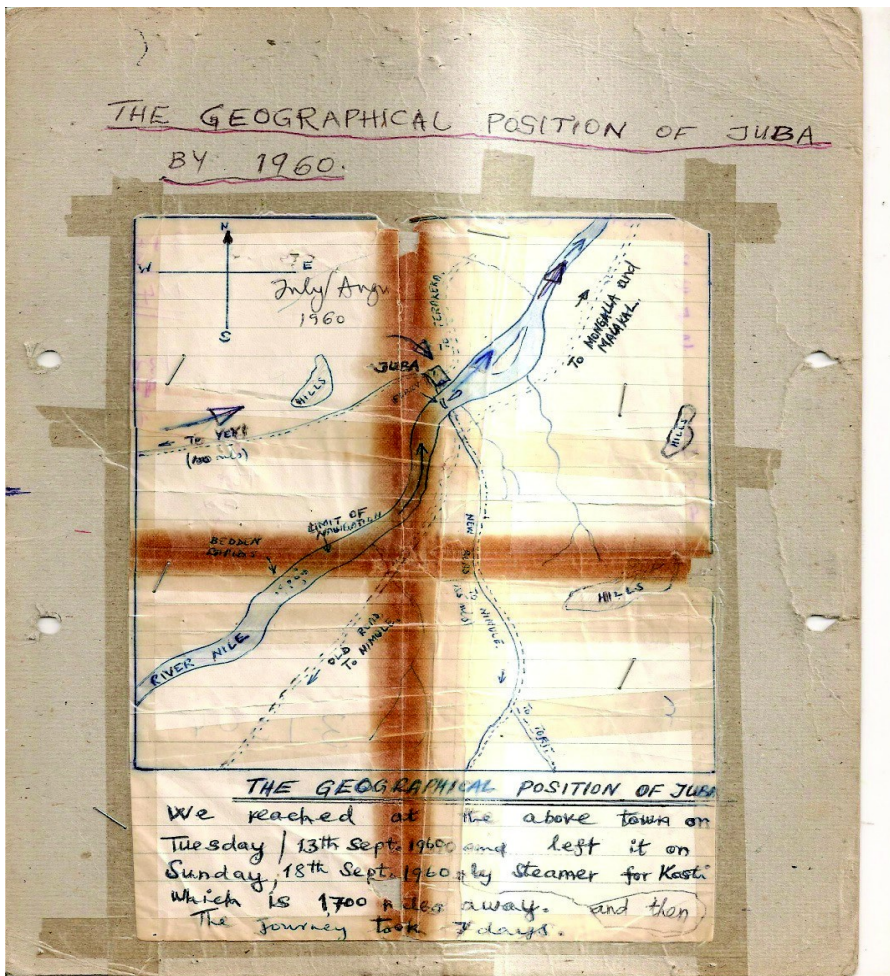 THE GEOGRAPHICAL POSITION OF JUBA
BY 1960.
N
W
E
S
July/Augu
1960
TO TERAKEKA.
TO MONGALLA and
MALAKAL.
JUBA
HILLS
HILLS
TO YEI
LIMIT OF
NAVIGATION
BEDDEN
RAPIDS
NEW ROAD TO NIMULE.
HILLS
OLD ROAD
TO NIMULE.
RIVER NILE
TO TORIT
THE GEOGRAPHICAL POSITION OF JUBA
We reached at the above town on
Tuesday / 13th Sept. 1960 and left it on
Sunday, 18th Sept. 1960 by Steamer for Kosti
which is 1700 miles away. and then
The journey took 7 days.